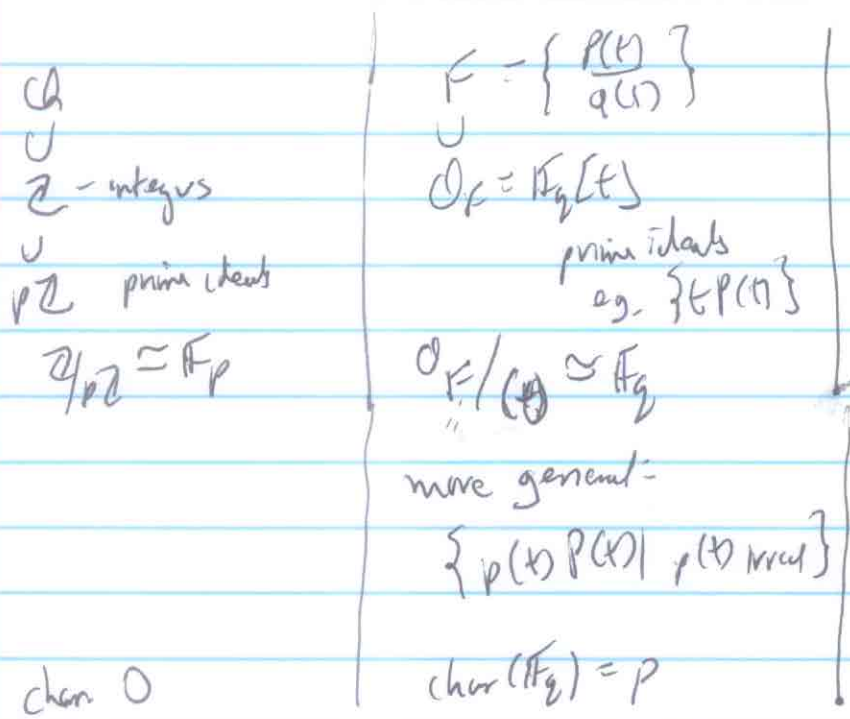 ℚ
∪
ℤ - integers
∪
pℤ prime ideals
ℤ/pℤ ≃ 𝔽_p
char 0
F = { P(t) / q(t) }
∪
O_F = 𝔽_q[t]
prime ideals
eg. {t P(t)}
O_F/(t) ≃ 𝔽_q
more general:
{ p(t) P(t) | p(t) irred }
char(𝔽_q) = p